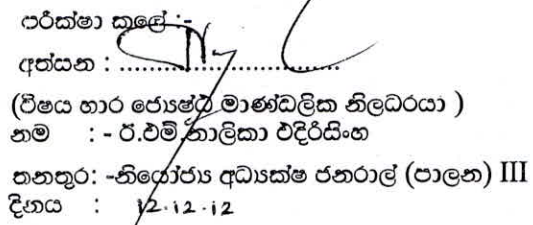 පරීක්ෂා කළේ :-
අත්සන : ........................................
(විෂය භාර ජ්‍යෙෂ්ඨ මාණ්ඩලික නිලධරයා )
නම : - ඊ.එම්.නාලිකා එදිරිසිංහ
තනතුර: -නියෝජ්‍ය අධ්‍යක්ෂ ජනරාල් (පාලන) III
දිනය : 12.12.12